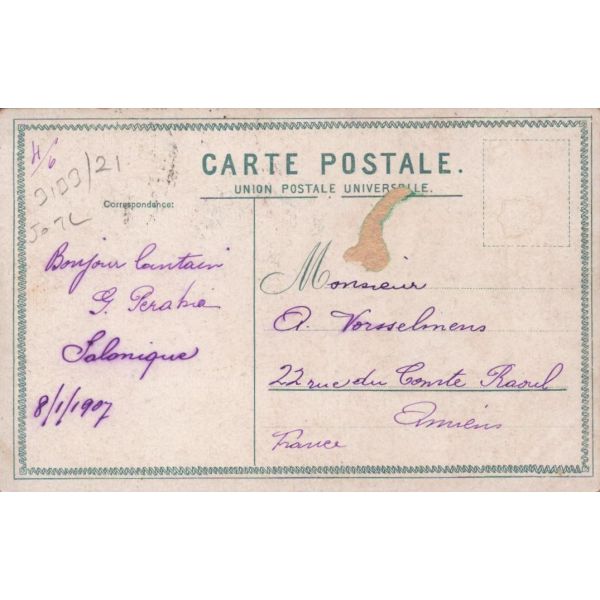 H/6
3103/21
CARTE POSTALE.
UNION POSTALE UNIVERSELLE.
Correspondance:
Bonjour
G.
Salonique
8/1/1907
Monsieur
A. Vorsselmens
22 rue du Comte Raoul
Amiens
France